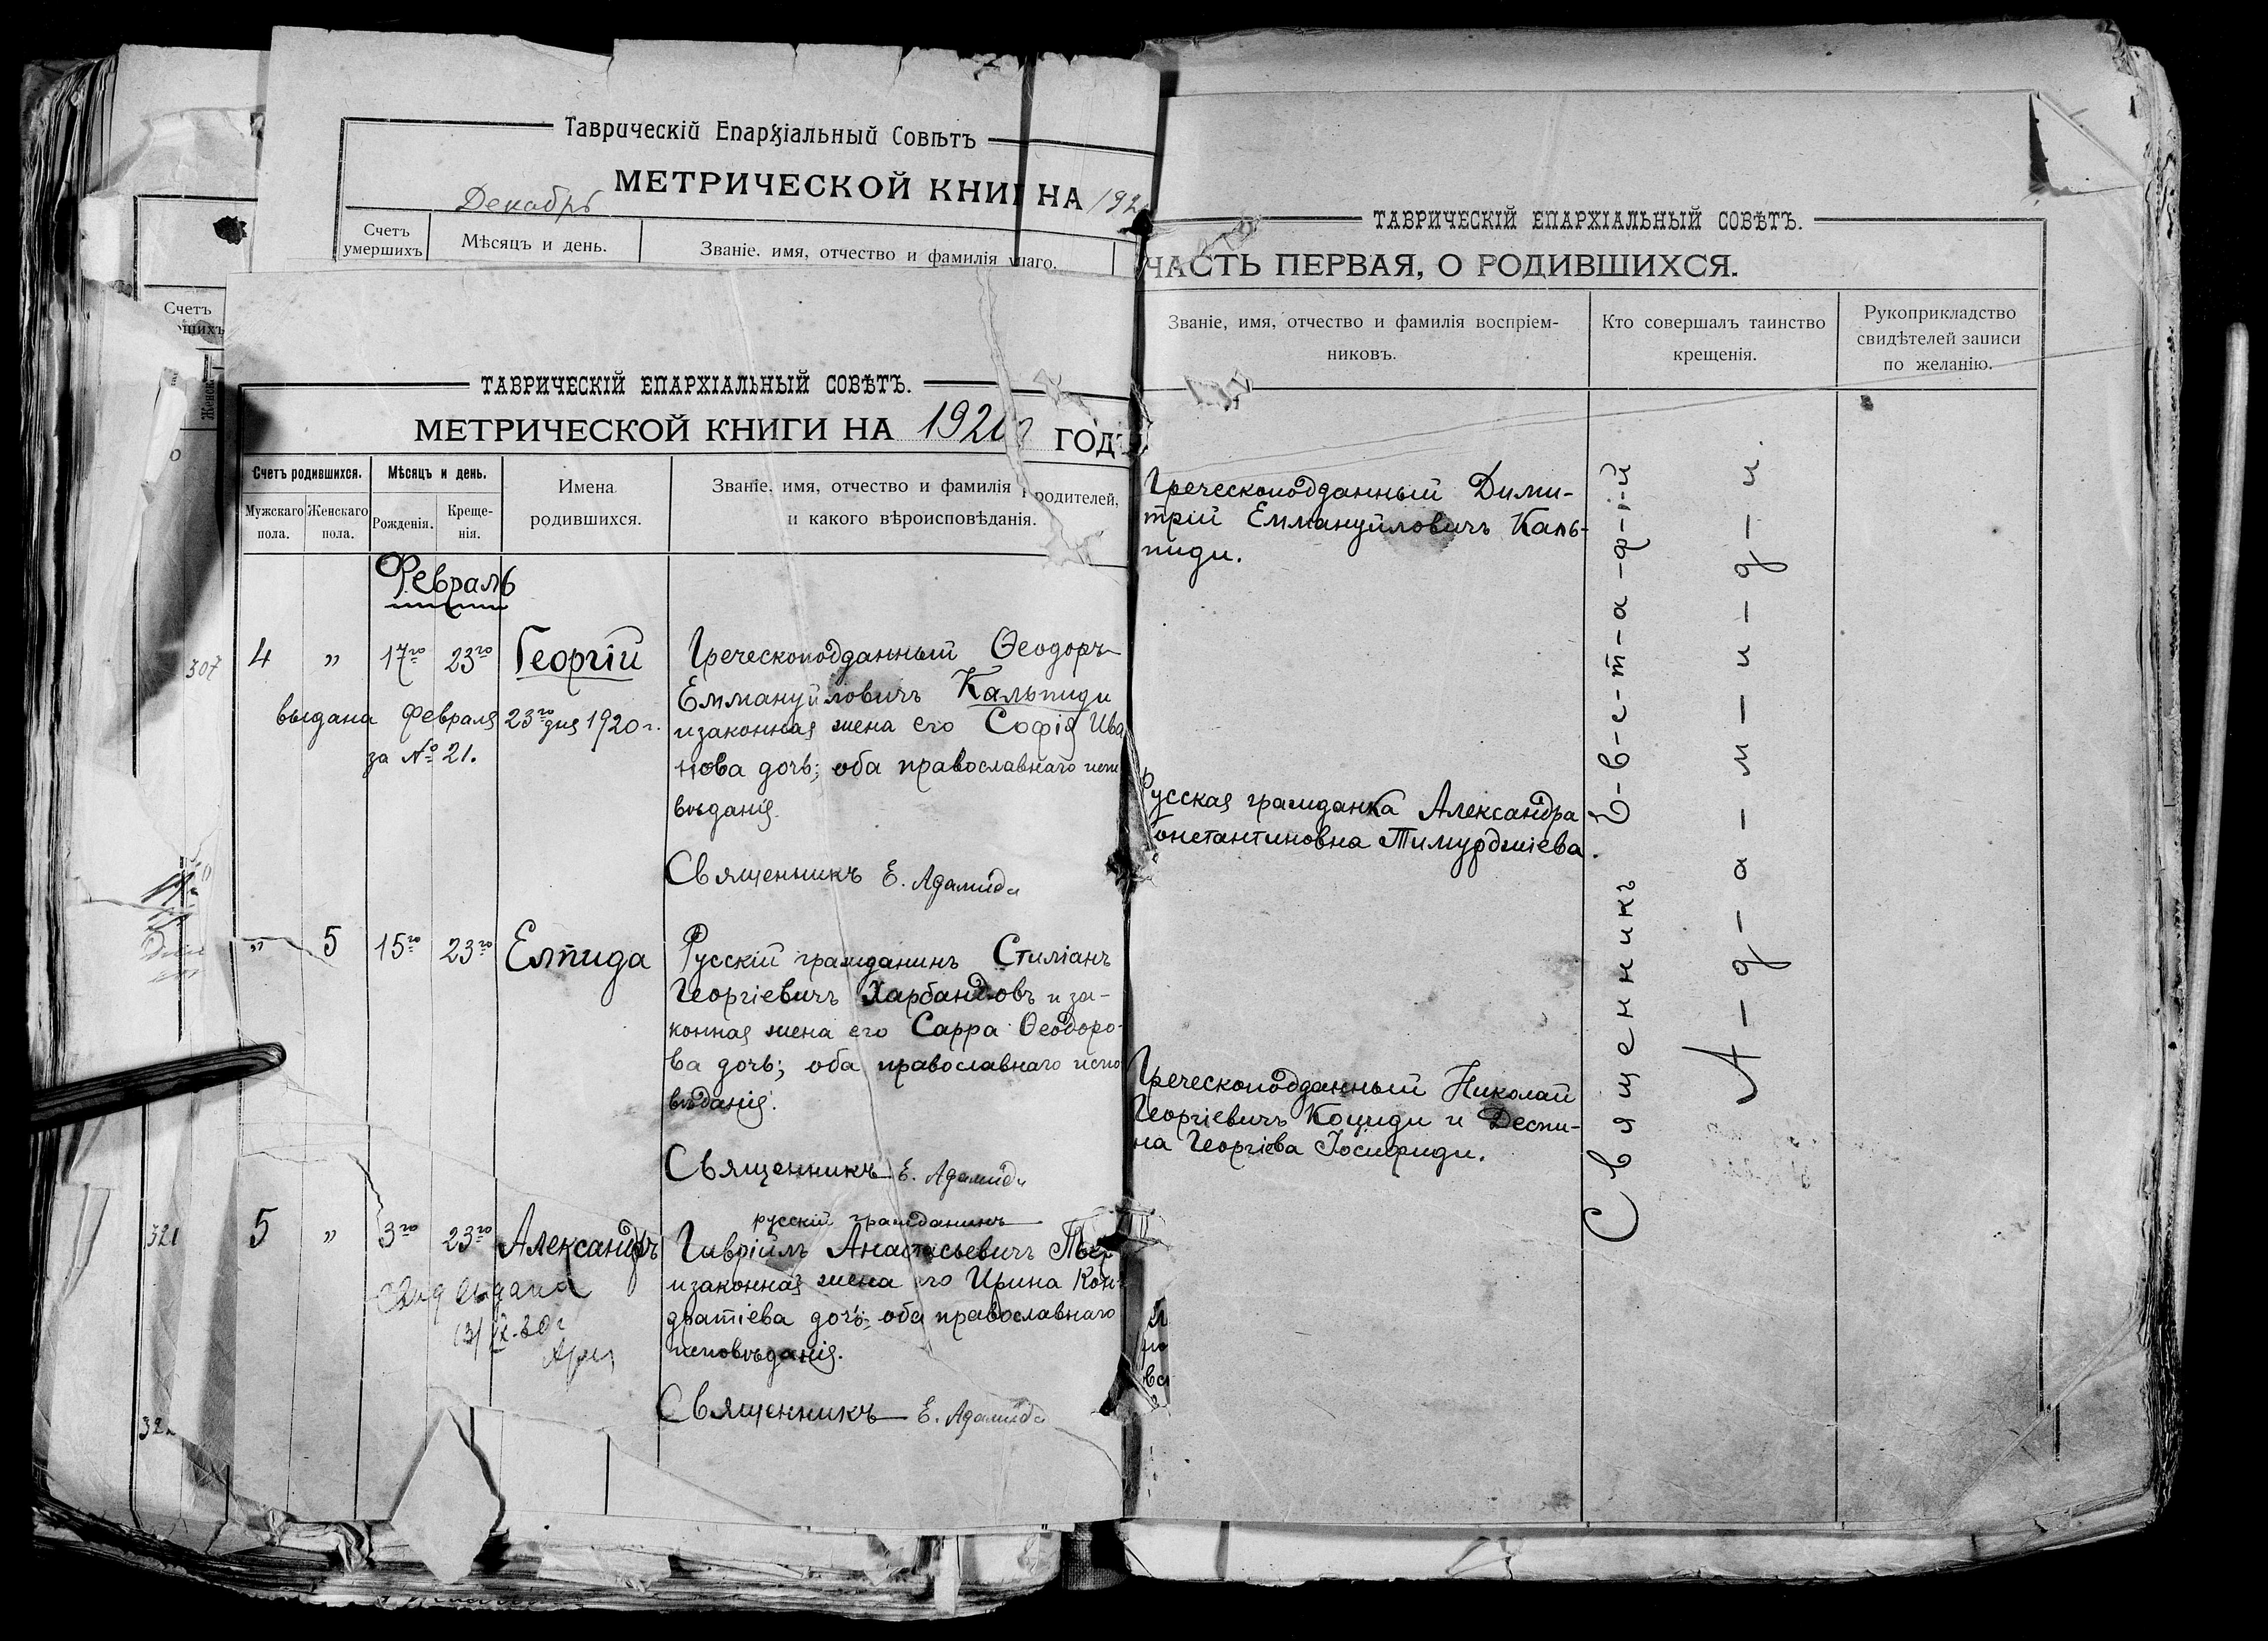 Таврическій Епархіальный Совѣтъ
МЕТРИЧЕСКОЙ КНИ НА 192
Декабрь
Счетъ умершихъ
Мѣсяцъ и день.
Званіе, имя, отчество и фамилія
Счетъ
307
321
ТАВРИЧЕСКІЙ ЕПАРХІАЛЬНЫЙ СОВѢТЪ.
МЕТРИЧЕСКОЙ КНИГИ НА 1920 ГОДЪ
Счетъ родившихся.
Мужскаго пола.
Женскаго пола.
Мѣсяцъ и день.
Рожденія.
Креще-
нія.
Имена
родившихся.
Званіе, имя, отчество и фамилія родителей,
и какого вѣроисповѣданія.
Февраль
4 „ 17го 23го Георгій
Греческоподданный Ѳеодоръ
Еммануйловичъ Кальпиди
и законная жена его Софія Ива
нова дочь; оба православнаго испо
вѣданія.
выдана февраля 23го дня 1920 г.
за № 21.
Священникъ Е. Адамиди
„ 5 15го 23го Елпида
Русскій гражданинъ Стиліанъ
Георгіевичъ Харбандовъ и за-
конная жена его Сарра Ѳеодоро-
ва дочь; оба православнаго испо
вѣданія.
Священникъ Е. Адамиди
5 „ 3го 23го Александръ
русскій гражданинъ
Гавріилъ Анастасьевичъ
и законная жена его Ирина Кон-
дратіева дочь; оба православнаго
исповѣданія.
выдана
Священникъ Е. Адамиди
ТАВРИЧЕСКІЙ ЕПАРХІАЛЬНЫЙ СОВѢТЪ.
ЧАСТЬ ПЕРВАЯ, О РОДИВШИХСЯ.
Званіе, имя, отчество и фамилія воспріем-
никовъ.
Кто совершалъ таинство
крещенія.
Рукоприкладство
свидѣтелей записи
по желанію.
Греческоподданный Дими-
трій Еммануйловичъ Каль-
пиди.
Русская гражданка Александра
Константиновна Тимурджіева.
Греческоподданный Николай
Георгіевичъ Коциди и Деспи-
на Георгіева Іосифиди.
Священникъ Е-в-с-т-а-ф-і-й
А-д-а-м-и-д-и.